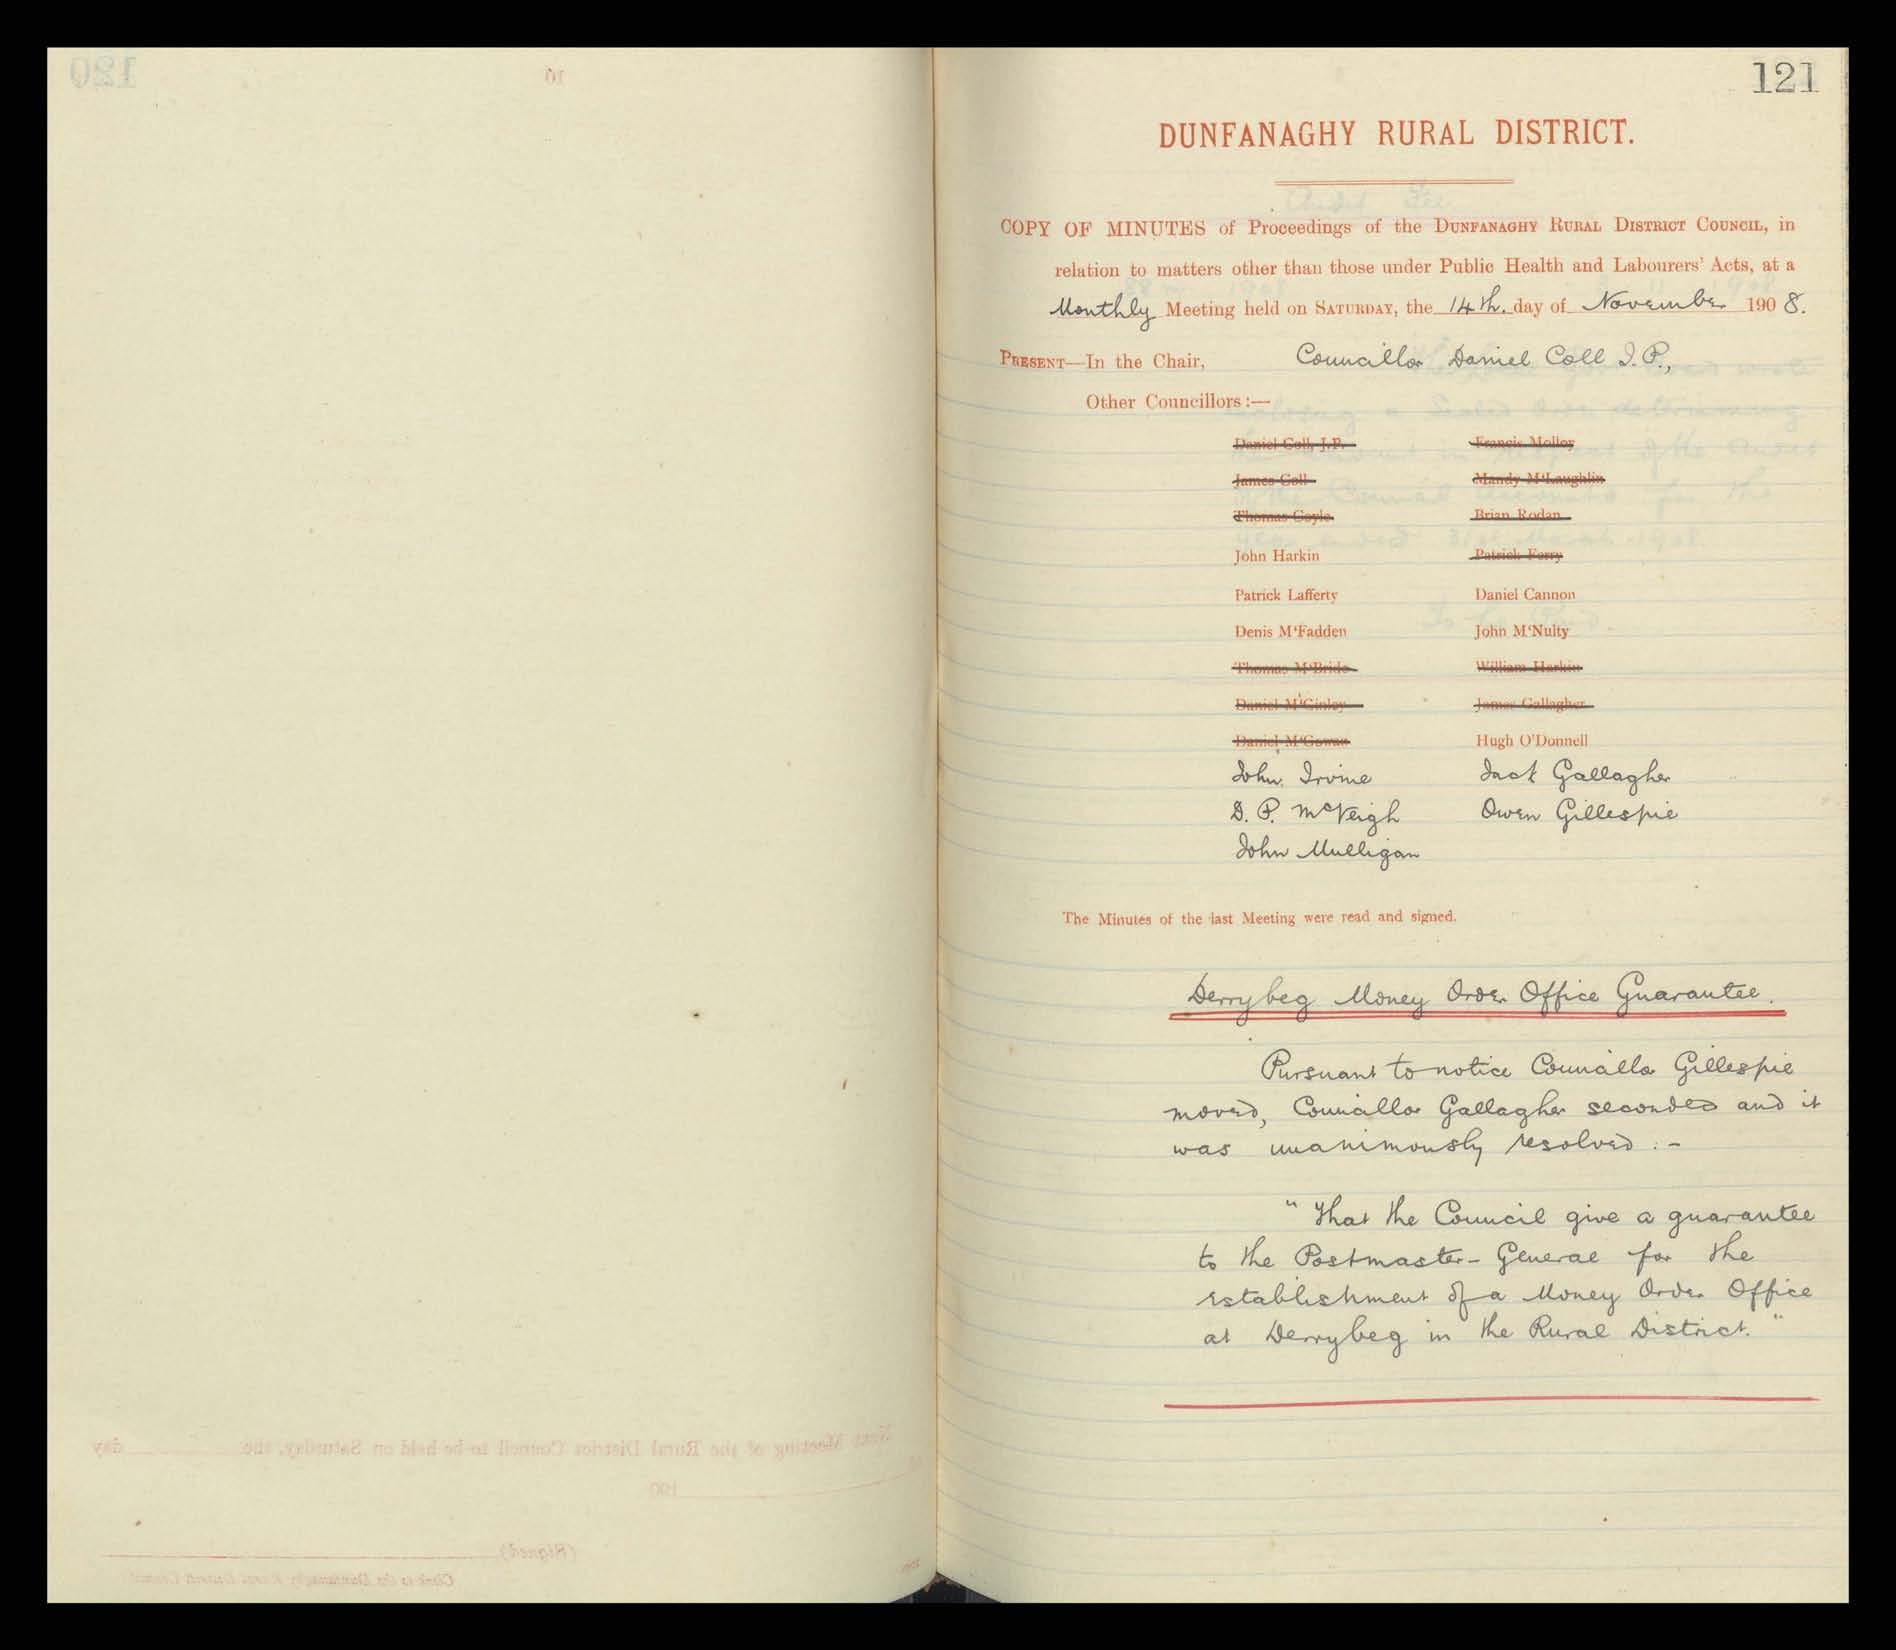 121
DUNFANAGHY RURAL DISTRICT.
COPY OF MINUTES of Proceedings of the DUNFANAGHY RURAL DISTRICT COUNCIL, in
relation to matters other than those under Public Health and Labourers' Acts, at a
Monthly Meeting held on SATURDAY, the 14th. day of November 1908.
PRESENT—In the Chair, Councillor Daniel Coll J.P.,
Other Councillors:—
Daniel Coll, J.P. Francis Molloy
James Coll Mandy M'Laughlin
Thomas Coyle Brian Rodan
John Harkin Patrick Ferry
Patrick Lafferty Daniel Cannon
Denis M'Fadden John M'Nulty
Thomas M'Bride William Harkin
Daniel M'Ginley James Gallagher
Daniel M'Gowan Hugh O'Donnell
John Irvine Jack Gallagher
D. P. McVeigh Owen Gillespie
John Mulligan
The Minutes of the last Meeting were read and signed.
Derrybeg Money Order Office Guarantee.
Pursuant to notice Councillor Gillespie
moved, Councillor Gallagher seconded and it
was unanimously resolved :-
"That the Council give a guarantee
to the Postmaster-General for the
establishment of a Money Order Office
at Derrybeg in the Rural District."